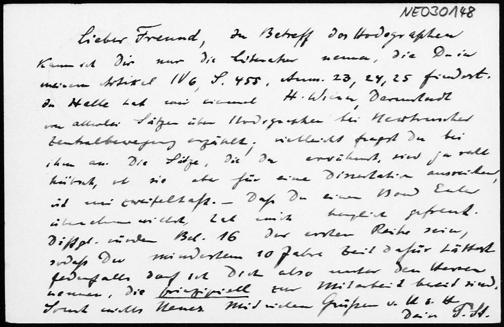 NEO30148
Lieber Freund, In Betreff des Hodographen
kann ich Dir nur die Literatur nennen, die Du in
meinem Artikel IV 6, S. 455, Anm. 23, 24, 25 findest.
In Halle hat mir einmal H. Wiener, Darmstadt
von allerlei Sätzen über Hodographen bei Newtonscher
Zentralbewegung erzählt; vielleicht fragst Du bei
ihm an. Die Sätze, die Du erwähnst, sind ja recht
hübsch, ob sie aber für eine Dissertation ausreichen,
ist mir zweifelhaft. – Daß Du einen Band Euler
übernehmen willst, hat mich herzlich gefreut.
würden Bd. 16 der ersten Reihe sein,
sodaß Du mindestens 10 Jahre Zeit dafür hättest.
Jedenfalls darf ich Dich also unter den Herren
nennen, die prinzipiell zur Mitarbeit bereit sind.
Sonst nichts Neues. Mit vielen Grüßen v. H. z. H.
Dein P. St.